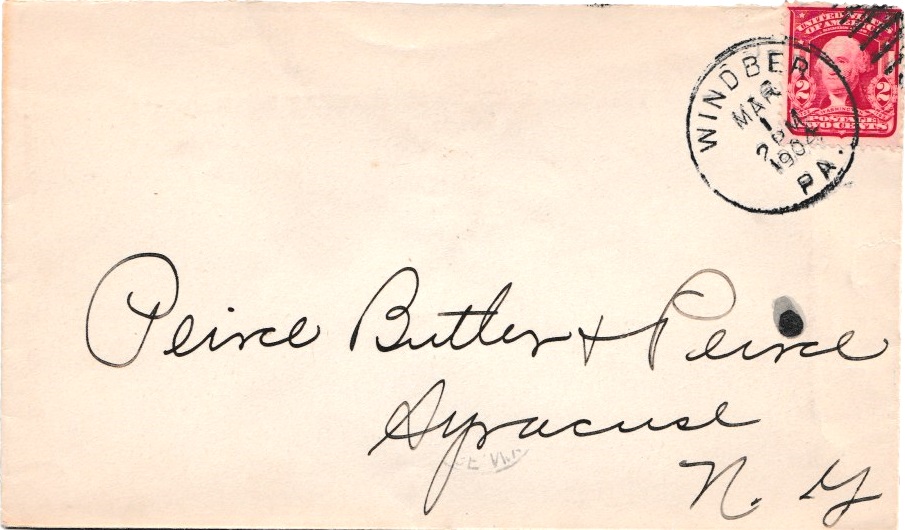 UNITED STATES
OF AMERICA
2 2
WASHINGTON
POSTAGE
TWO CENTS
WINDBER
MAR
1
2 PM
1904
PA.
Peirce Butler & Peirce
Syracuse
N. Y